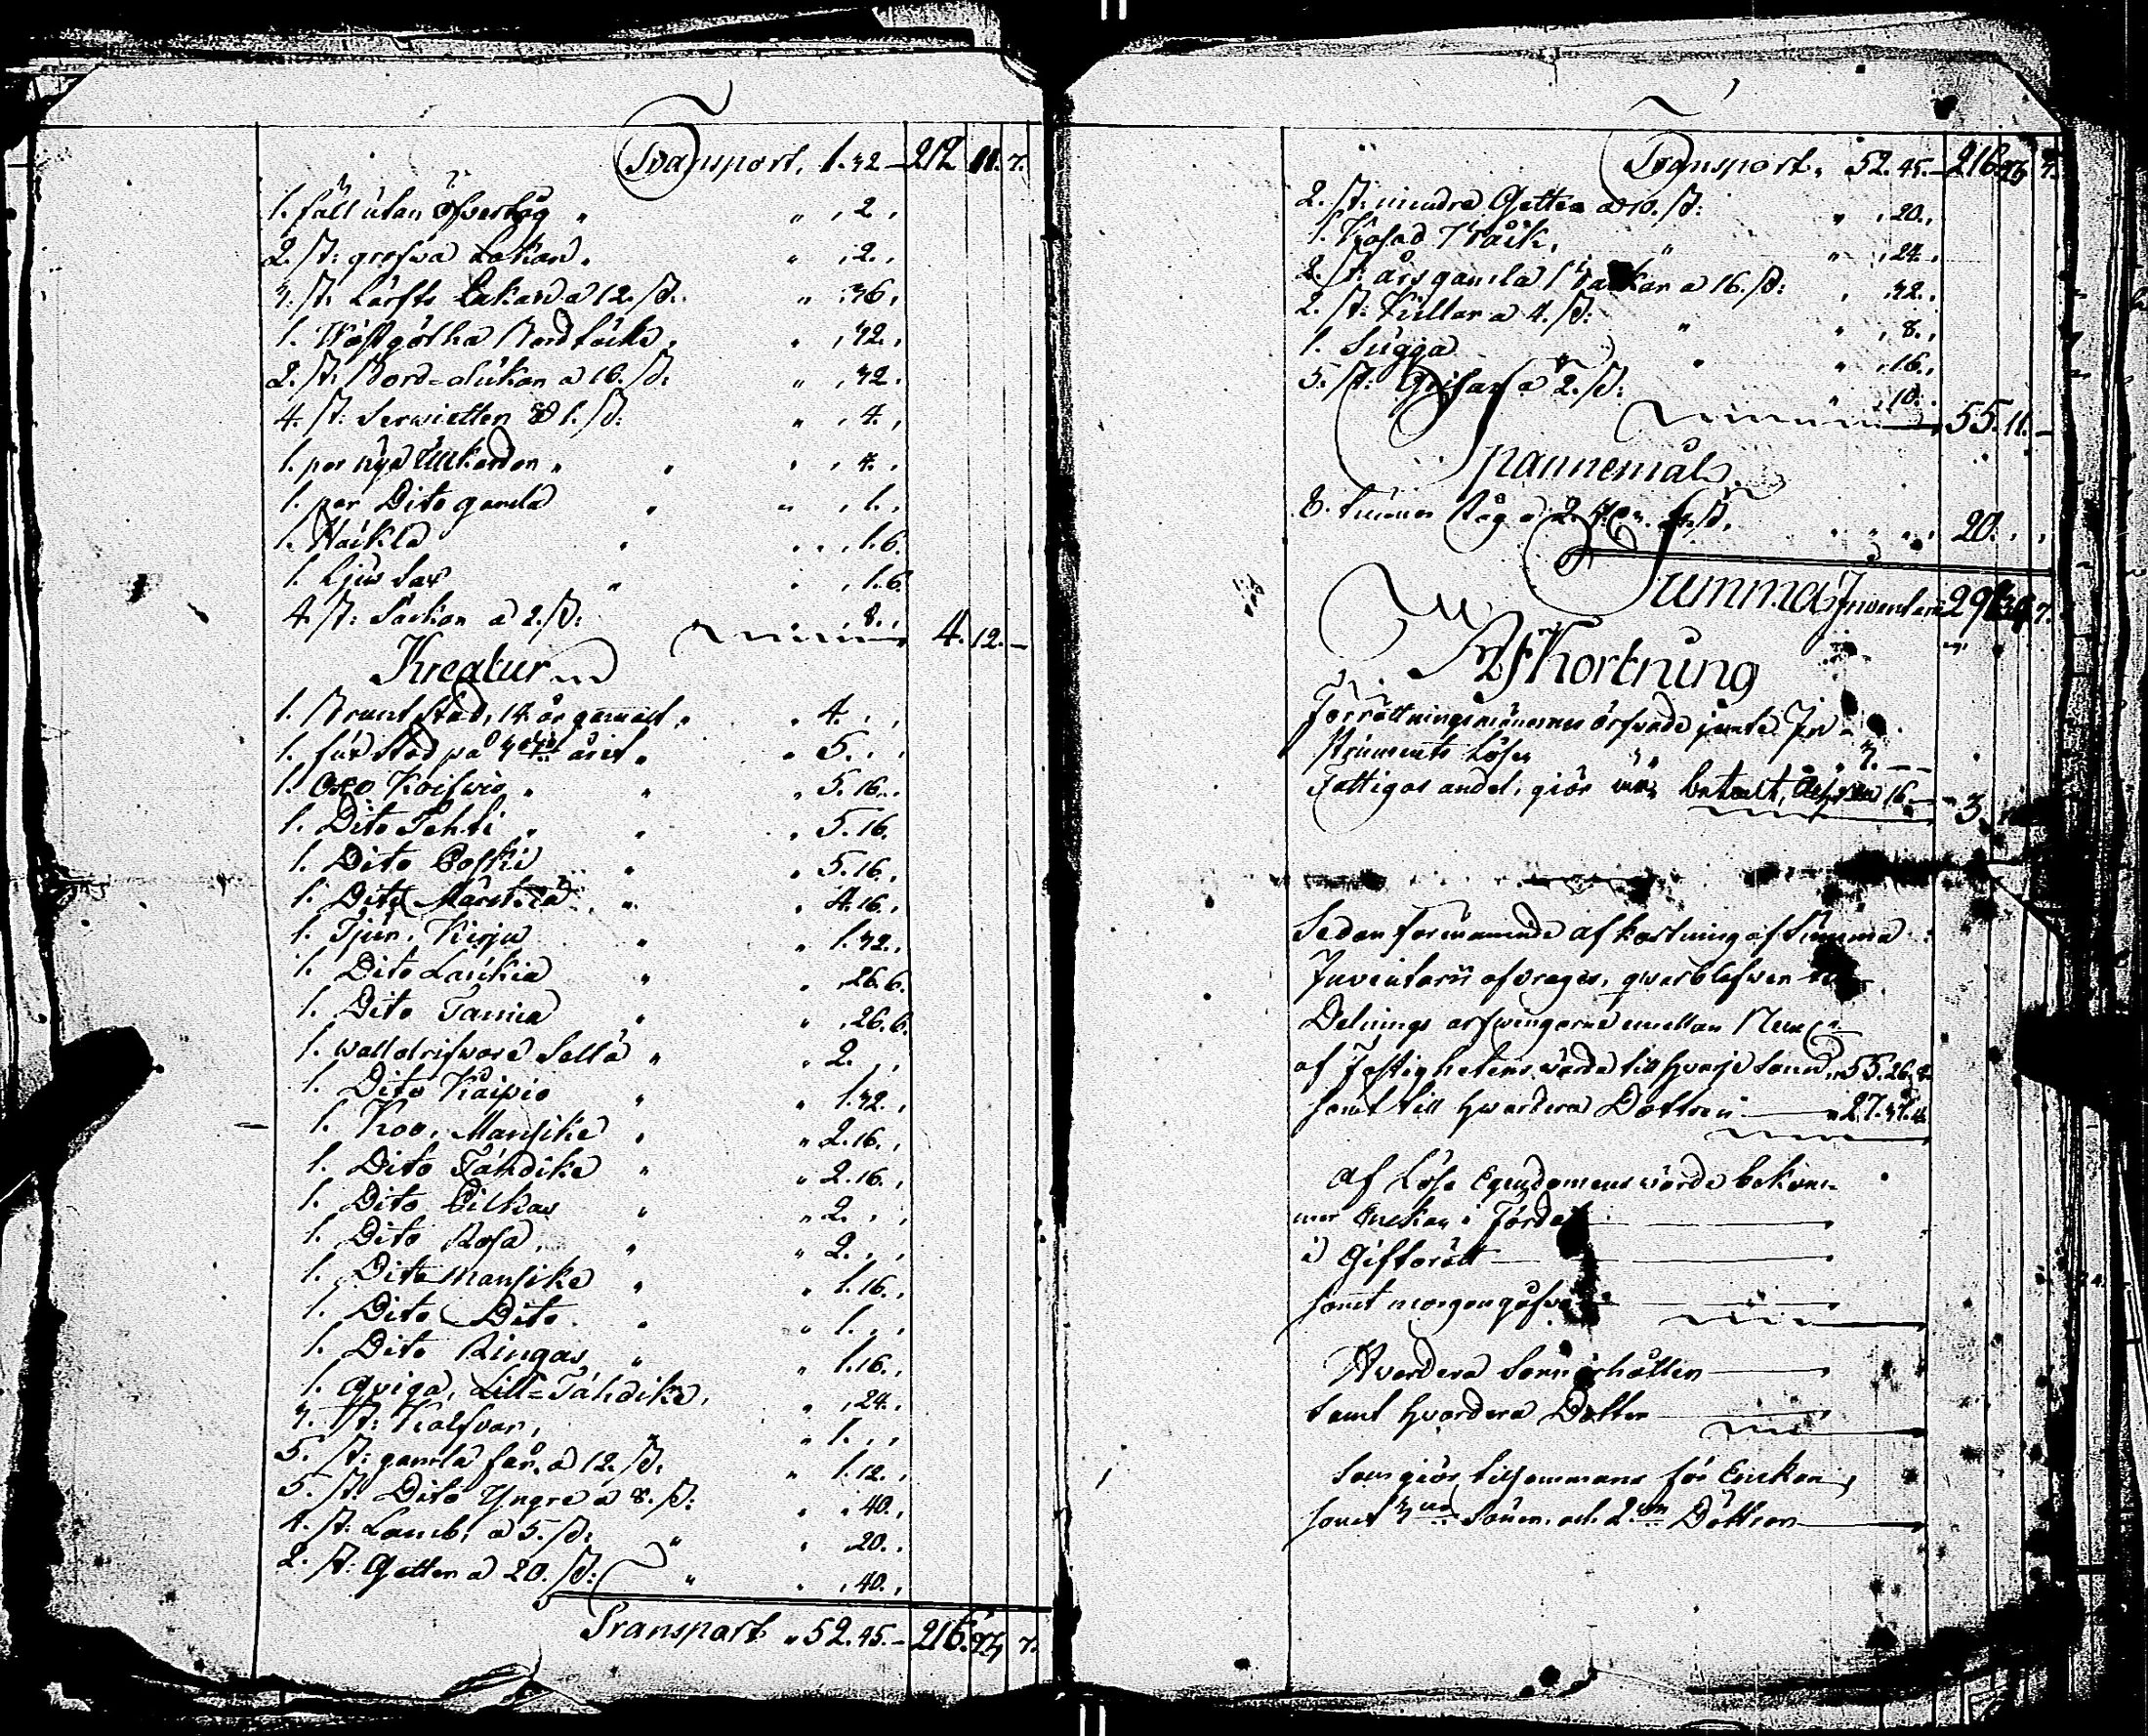 Transport. 1. 32 – 212 11. 7.
1. fäll utan öfvertåg " " , 2. ,
2. st: grofwa Lakan. " , 2. ,
3. st: Lärfts Lakan a 12. sk: " , 36 ,
1. Wästgötha Bordtäcke. " , 32. ,
2. st: Bord=dukan a 16. sk: " , 32. ,
4. st: Servietter a 1. sk: " , 4. ,
1. par nya Ullkardor " " , 4. ,
1. par Dito gamla " " , 1. ,
1. Häckla " , 1. 6.
1. Ljus Sax " , 1. 6.
4. st: Säckar a 2. sk: , 8. , 4. 12. –
Kreatur
1. Brunt Stod, 14 år gamalt " " 4. , ,
1. fux Stod på 3dje året " " 5. , ,
1. Oxe Koifwio " " " 5. 16. ,
1. Dito Tehti " " " 5. 16.
1. Dito Poski " " 5. 16. ,
1. Dito " " 4. 16. ,
1. Tjur, Kirju " " 1. 32. ,
1. Dito Laukia " " , 26. 6.
1. Dito " " , 26. 6.
1. Sellä " " 2. , ,
1. Dito Kaipio " " 1. 32. ,
1. Koo, Mansike " " 2. 16. ,
1. Dito Tähdike " " 2. 16. ,
1. Dito Pilkas " " 2. , ,
1. Dito Rosa. " " 2. , ,
1. Dito Mansike " " 1. 16. ,
1. Dito Dito " " 1. , ,
1. Dito Ringas " " 1. 16. ,
1. Qviga, Lill=Tähdike. " , 24. ,
3. st: Kalfvar, " 1. , ,
5. st: gamla får, a 12. sk: " 1. 12. ,
5. st: Dito Yngre a 8. sk: " , 40. ,
4. st: Lamb, a 5. sk: " " , 20. ,
2. st: Getter a 20. sk: " " , 40. ,
Transport " 52. 45. – 216. 23 7.
Transport. 52. 45. – 216 23 7.
2. st: mindre Getter a 10. sk: " , 20. ,
1. " , 24. ,
2. st: årsgamla a 16. sk: , 32. ,
2. st: Killar a 4. sk: " " , 8. ,
1. Sugga " " , 16. ,
5. st: Grisar a 2. sk: " , 10. , 55. 11. –
Spannemål
8. tunnor Råg a 2. 20. , ,
Summa Inventarii
Afkortning
Förrättningsmännernes arfwode jemte In-
struments Lösen " " 3. – –
Fattigas andel, giör betalt, 16. – 3.
Sedan förenämnde afkortning af Summa
Inventarii afdrages, qwarblifwer
Delnings arfwingarne emellan
af Fastighetens wärde till hwarje Son " 55. 26.
samt till hwardera Dottren " 27.
Af Lösa Egendomens wärde bekom-
mer Enckan i Fördel
i Giftorätt
samt morgongåfva
Hwardera Son erhåller
samt hwardera Dotter
som giör tillsammans för Enckan,
samt 3ne Söner och 2ne Döttrar